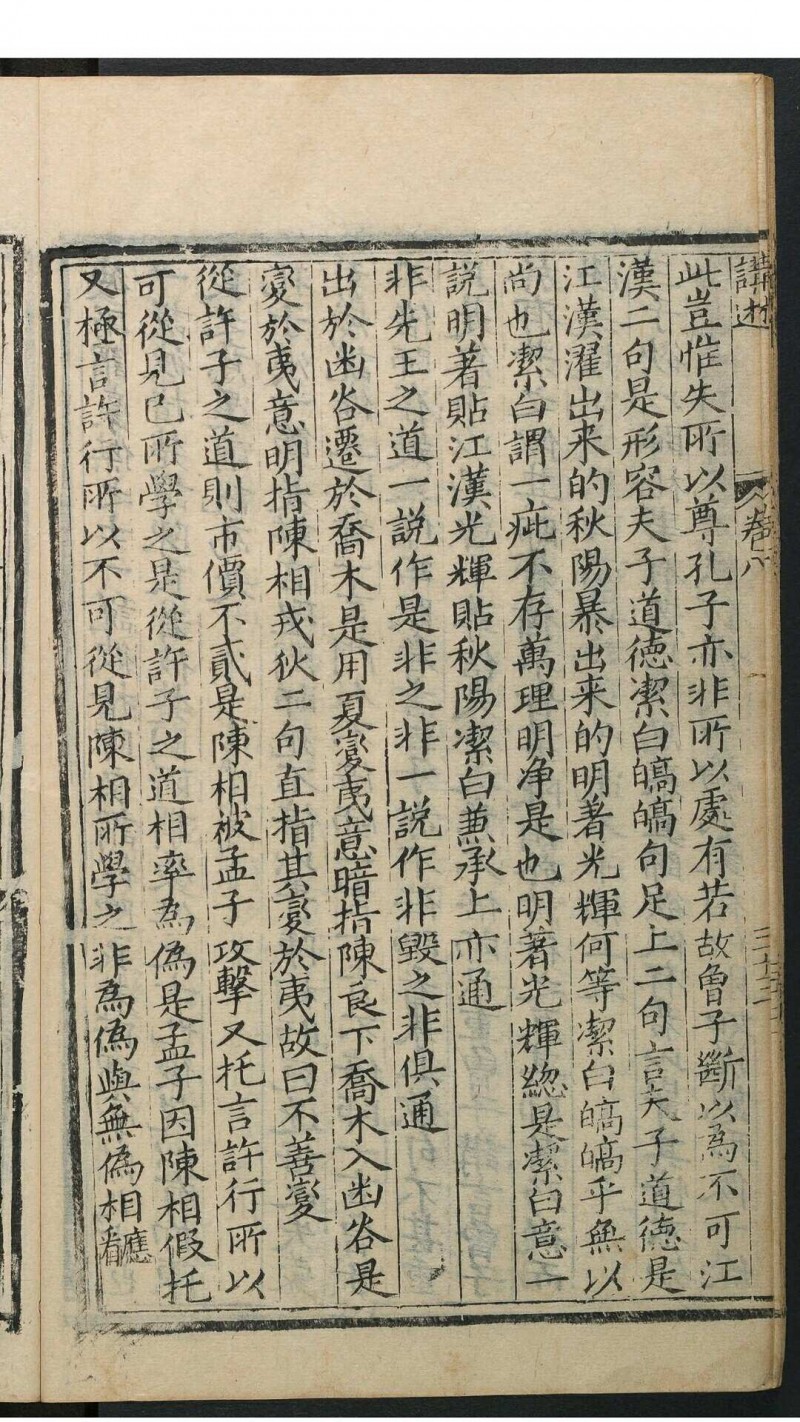 講述 卷六
此豈惟失所以尊孔子亦非所以處有若故曾子斷以為不可江
漢二句是形容夫子道德潔白皜皜句足上二句言夫子道德是
江漢濯出来的秋陽暴出来的明著光輝何等潔白皜皜乎無以
尚也潔白謂一疵不存萬理明净是也明著光輝緫是潔白意一
説明著貼江漢光輝貼秋陽潔白兼承上亦通
非先王之道一説作是非之非一説作非毀之非俱通
出於幽谷遷於喬木是用夏變夷意暗指陳良下喬木入幽谷是
變於夷意明指陳相戎狄二句直指其變於夷故曰不善變
從許子之道則市價不貳是陳相被孟子攻擊又托言許行所以
可從見已所學之是從許子之道相率為偽是孟子因陳相假托
又極言許行所以不可從見陳相所學之非為偽與無偽相應看